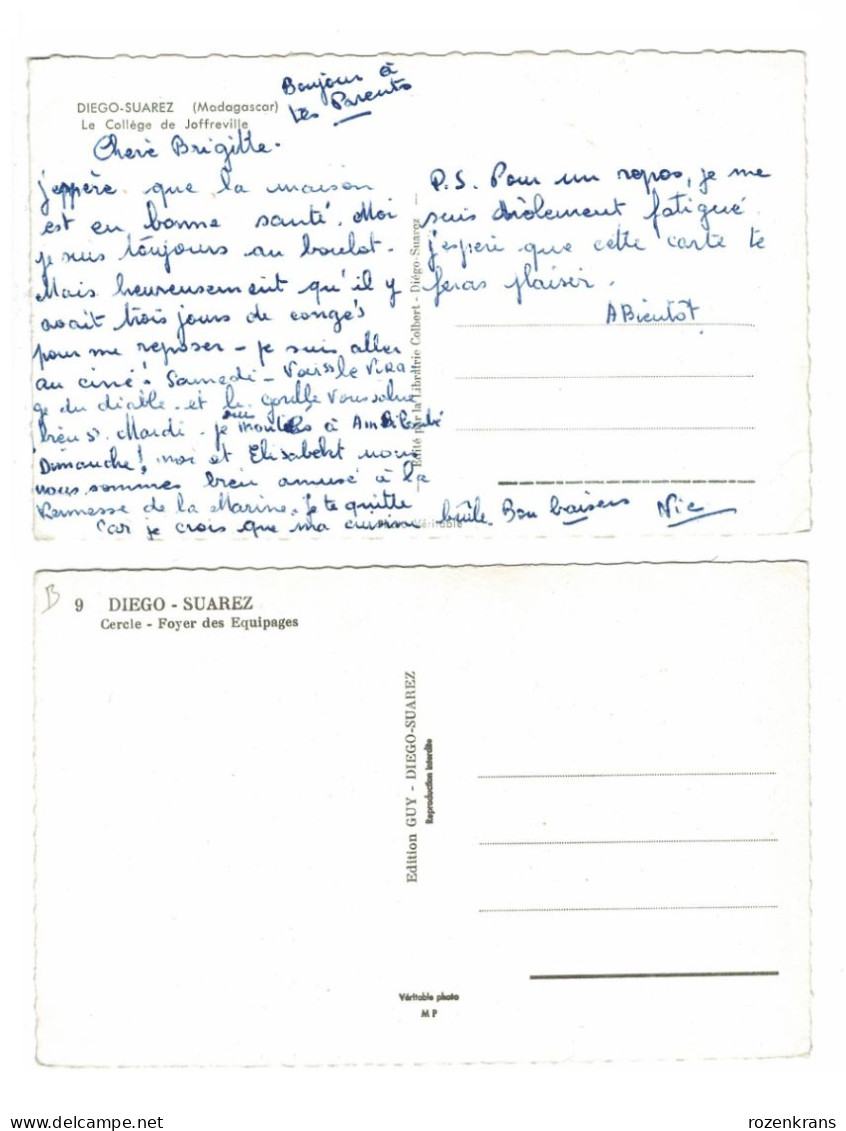 Bonjour à
tes Parents
DIEGO-SUAREZ (Madagascar)
Le Collège de Joffreville
Chère Brigitte.
j'espère que la maison
est en bonne santé. Moi
je suis toujours au boulot.
Mais heureusement qu'il y
avait trois jours de congés
pour me reposer - je suis aller
au ciné! Samedi - Vaisle Vira
ge du diable. et le gorille vous salue
bien. Mardi. je suis à
Dimanche! moi et Elisabeht nous
nous sommes bien amusé à la
Kermesse de la Marine. Je te quitte
Car je crois que ma cuisine brûle. Bon baisers Nic
P.S. Pour un repos, je me
suis drôlement fatigué
j'espere que cette carte te
feras plaisir.
A Bientôt
Edité par la Librairie Colbert - Diégo-Suarez
Véritable
B
9 DIEGO - SUAREZ
Cercle - Foyer des Equipages
Edition GUY - DIEGO-SUAREZ
Reproduction interdite
Véritable photo
M P
delcampe.net
rozenkrans